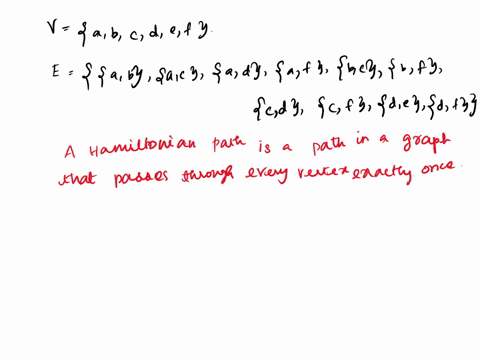 V = {a, b, c, d, e, f}.
E = {{a, b}, {a, e}, {a, d}, {a, f}, {b, e}, {b, f},
{c, d}, {c, f}, {d, e}, {d, f}}
A Hamiltonian path is a path in a graph
that passes through every vertex exactly once.